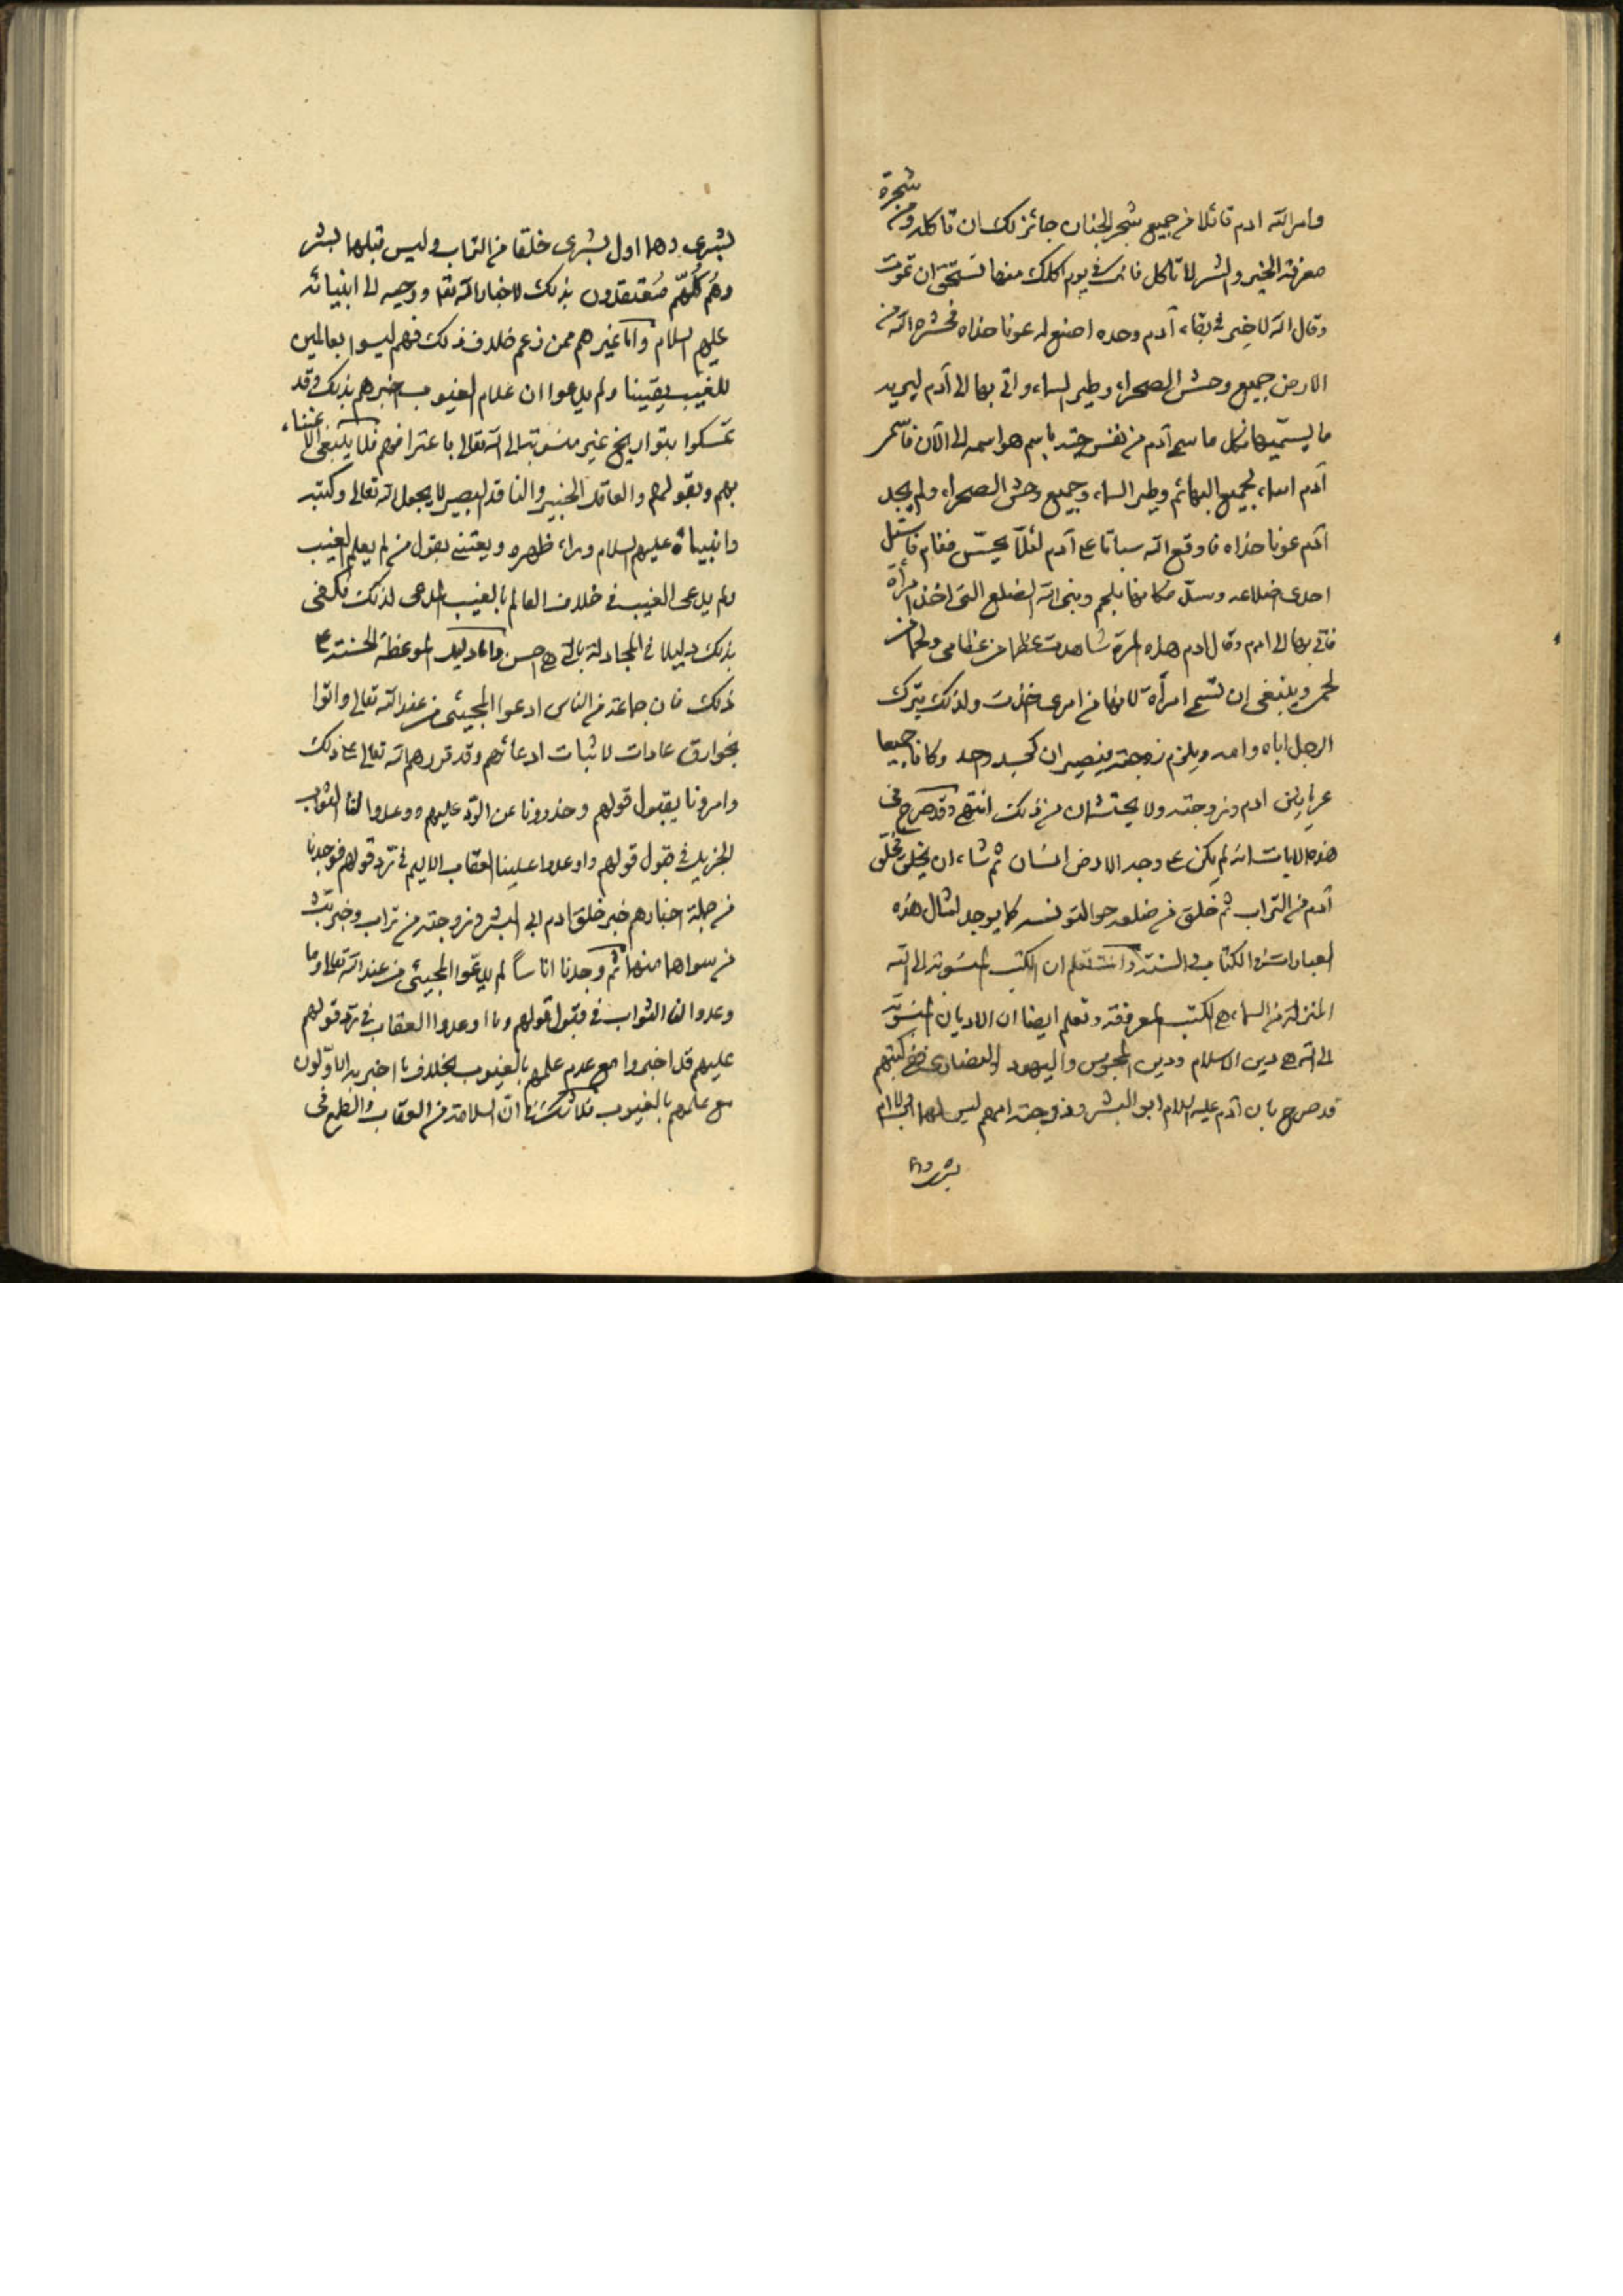 وامر الله ادم قائلا من جميع شجر الجنان جائز لك ان تاكل ومن شجرة
معرفة الخير والشر لا تاكل فانك في يوم اكلك منها تستحق ان تموت
وقال الله لا خير في بقاء آدم وحده اصنع له عونا حذاه فحشر الله من
الارض جميع وحش الصحراء وطير السماء واتى بها الى آدم ليريد
ما يسميها فكل ما سمى آدم من نفس حية باسم هو اسمه الى الآن
آدم اسماء لجميع البهائم وطير السماء وجميع وحش الصحراء ولم يجد
آدم عونا حذاه فاوقع الله سباتا على آدم لئلا يحس فنام فاستل
احدى اضلاعه وسد مكانها بلحم وبنى الله الضلع التي اخذ امرأة
فاتى بها الى ادم وقال ادم هذه المرة شاهدت عظما من عظامي ولحما من
لحمي وينبغي ان تسمى امرأة لانها من امرء اخذت ولذلك يترك
الرجل اباه وامه ويلزم زوجته فيصيران كجسد واحد وكانا جميعا
عريانين ادم وزوجته ولا يحتشمان من ذلك انتهى وقد صرح في
هذه الايات انه لم يكن على وجه الارض انسان ثم شاء ان يخلق فخلق
آدم من التراب ثم خلق من ضلعه حوا لتونسه كما يوجد امثال هذه
العبارات في الكتاب والسنة وانت تعلم ان الكتب المنسوبة الى الله
المنزلة من السماء هي الكتب المعروفة وتعلم ايضا ان الاديان المنسوبة
الى الله هي دين الاسلام ودين المجوس واليهود والنصارى ففي كتبهم
قد صرح بان آدم عليه السلام ابو البشر وزوجته امهم ليس لهما اب ولا ام
بشر وهما
بشرى وهما اول بشرى خلقا من التراب وليس قبلهما بشر
وهم كلهم معتقدون بذلك لاخبار الله تعالى ووحيه الى انبيائه
عليهم السلام واما غيرهم ممن زعم خلاف ذلك فهم ليسوا بعالمين
للغيب يقينا ولم يدعوا ان علام الغيوب اخبرهم بذلك وقد
تمسكوا بتواريخ غير منسوبة الى الله تعالى باعترافهم فلا ينبغي الاعتناء
بهم وبقولهم والعاقل الخبير والناقد البصير لا يجعل الله تعالى وكتبه
وانبياءه عليهم السلام وراء ظهره ويعتني بقول من لم يعلم الغيب
ولم يدعى الغيب في خلاف العالم بالغيب المدعى لذلك فكفى
بذلك دليلا في المجادلة بالتي هي احسن واما دليل الموعظة الحسنة على
ذلك فان جماعة من الناس ادعوا المجيئ من عند الله تعالى واتوا
بخوارق عادات لاثبات ادعائهم وقد قررهم الله تعالى على ذلك
وامرونا بقبول قولهم وحذرونا عن الرد عليهم ووعدوا لنا الثواب
الجزيل في قبول قولهم واوعدوا علينا العقاب الاليم في ترد قولهم فوجدنا
من جملة اخبارهم خبر خلق ادم ابي البشر وزوجته من تراب وخبر بث
من سواهما منهما ثم وجدنا اناسا لم يدعوا المجيئ من عند الله تعالى وما
وعدوا لنا الثواب في قبول قولهم وما اوعدوا العقاب في ترد قولهم
عليهم قد اخبروا مع عدم علمهم بالغيوب بخلاف ما اخبر به الاولون
مع علمهم بالغيوب فلا شك ان السلامة من العقاب والطمع في